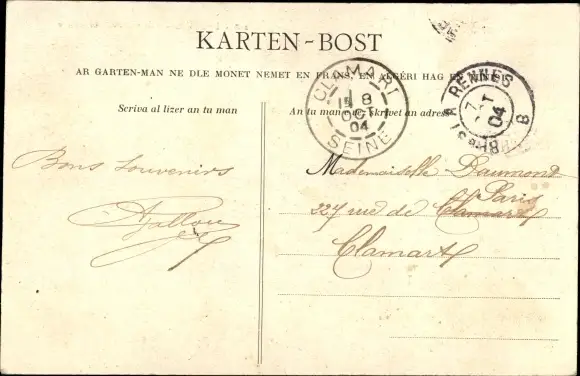 KARTEN-BOST
AR GARTEN-MAN NE DLE MONET NEMET EN FRANS, EN ALGÉRI HAG EN
Scriva al lizer an tu man
An tu man da skrivet an adress
CLAMART
8
OCT
04
SEINE
RENNES
7
OCT
04
Bons souvenirs
Mademoiselle Daumont
227 rue de Clamart
Paris
Clamart